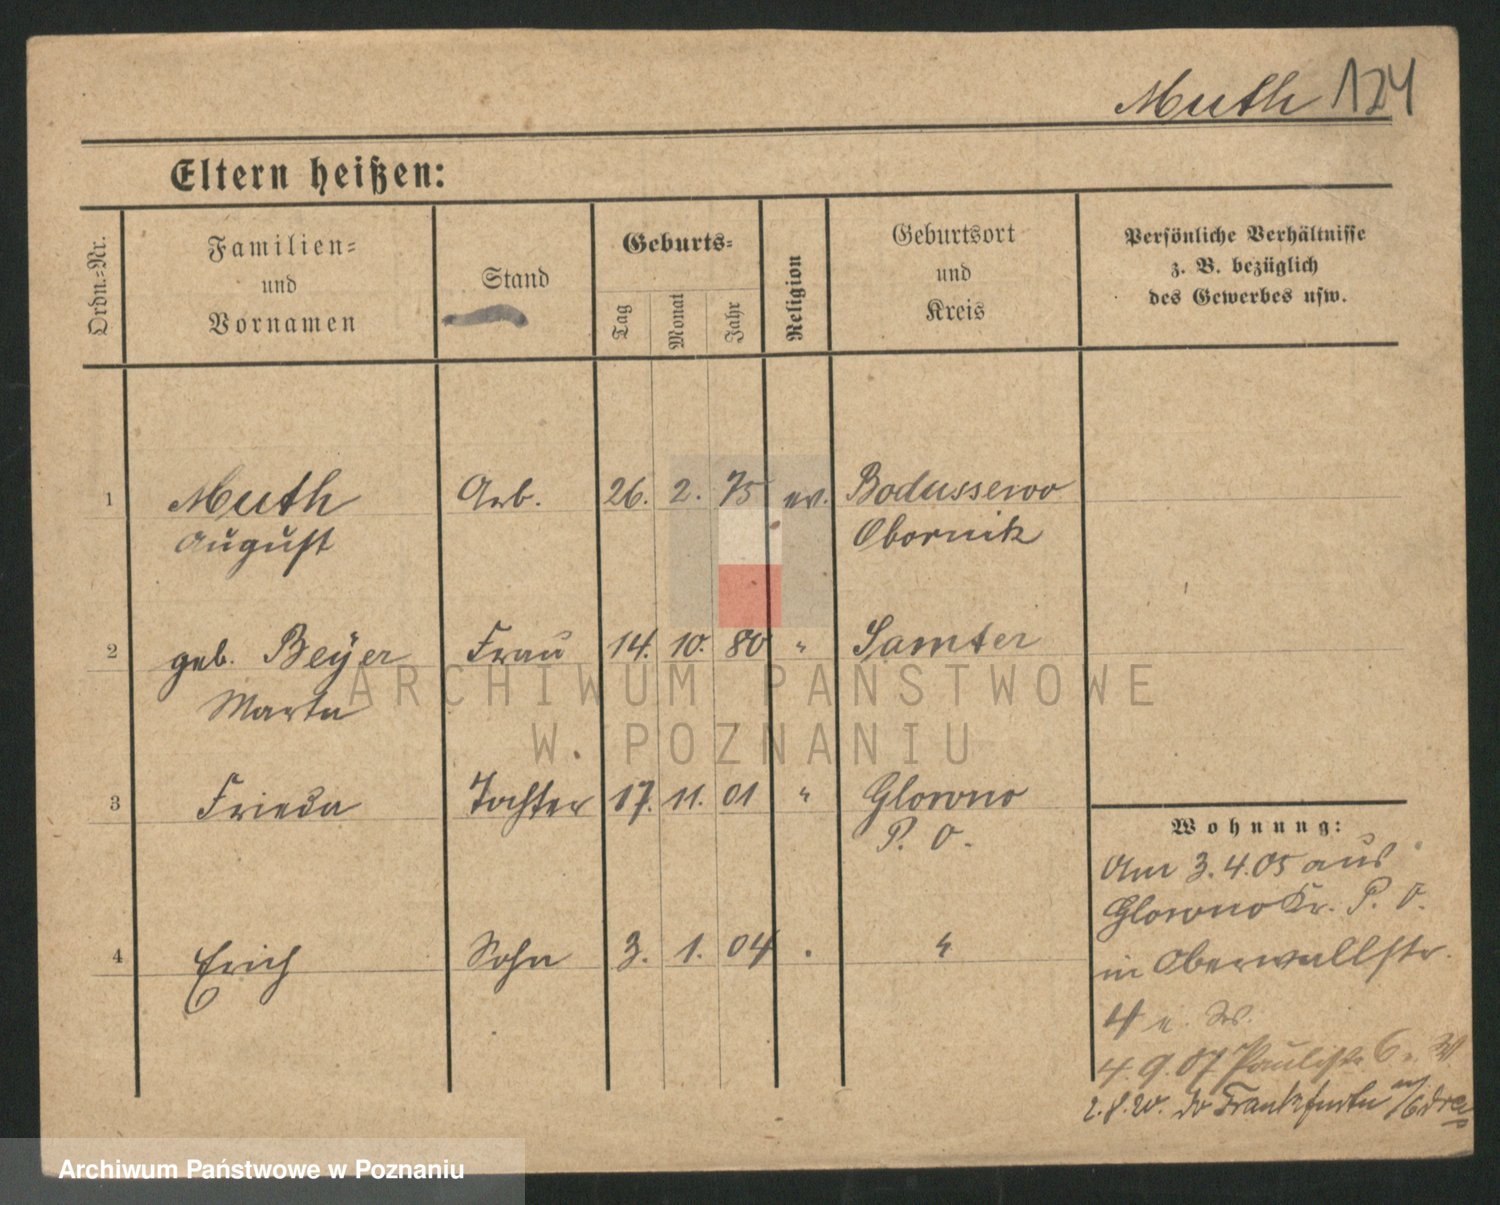 Muth 124
Eltern heißen:
Ordn.=Nr.
Familien=
und
Vornamen
Stand
Geburts=
Tag
Monat
Jahr
Religion
Geburtsort
und
Kreis
Persönliche Verhältnisse
z. B. bezüglich
des Gewerbes usw.
1 Muth Arb. 26. 2. 75 ev. Bodussewo
August Obornik
2 geb. Beÿer Frau 14. 10. 80 " Samter
Marta
ARCHIWUM PAŃSTWOWE
W POZNANIU
3 Frieda Tochter 17. 11. 01 " Glowno
P. O.
4 Erich Sohn 3. 1. 04 "
Wohnung:
Am 3.4.05 aus
Glowno Kr. P. O.
in Oberwallstr.
4
4.9.07 Paulistr. 6
2.8.20. do Frankfurtu
Archiwum Państwowe w Poznaniu